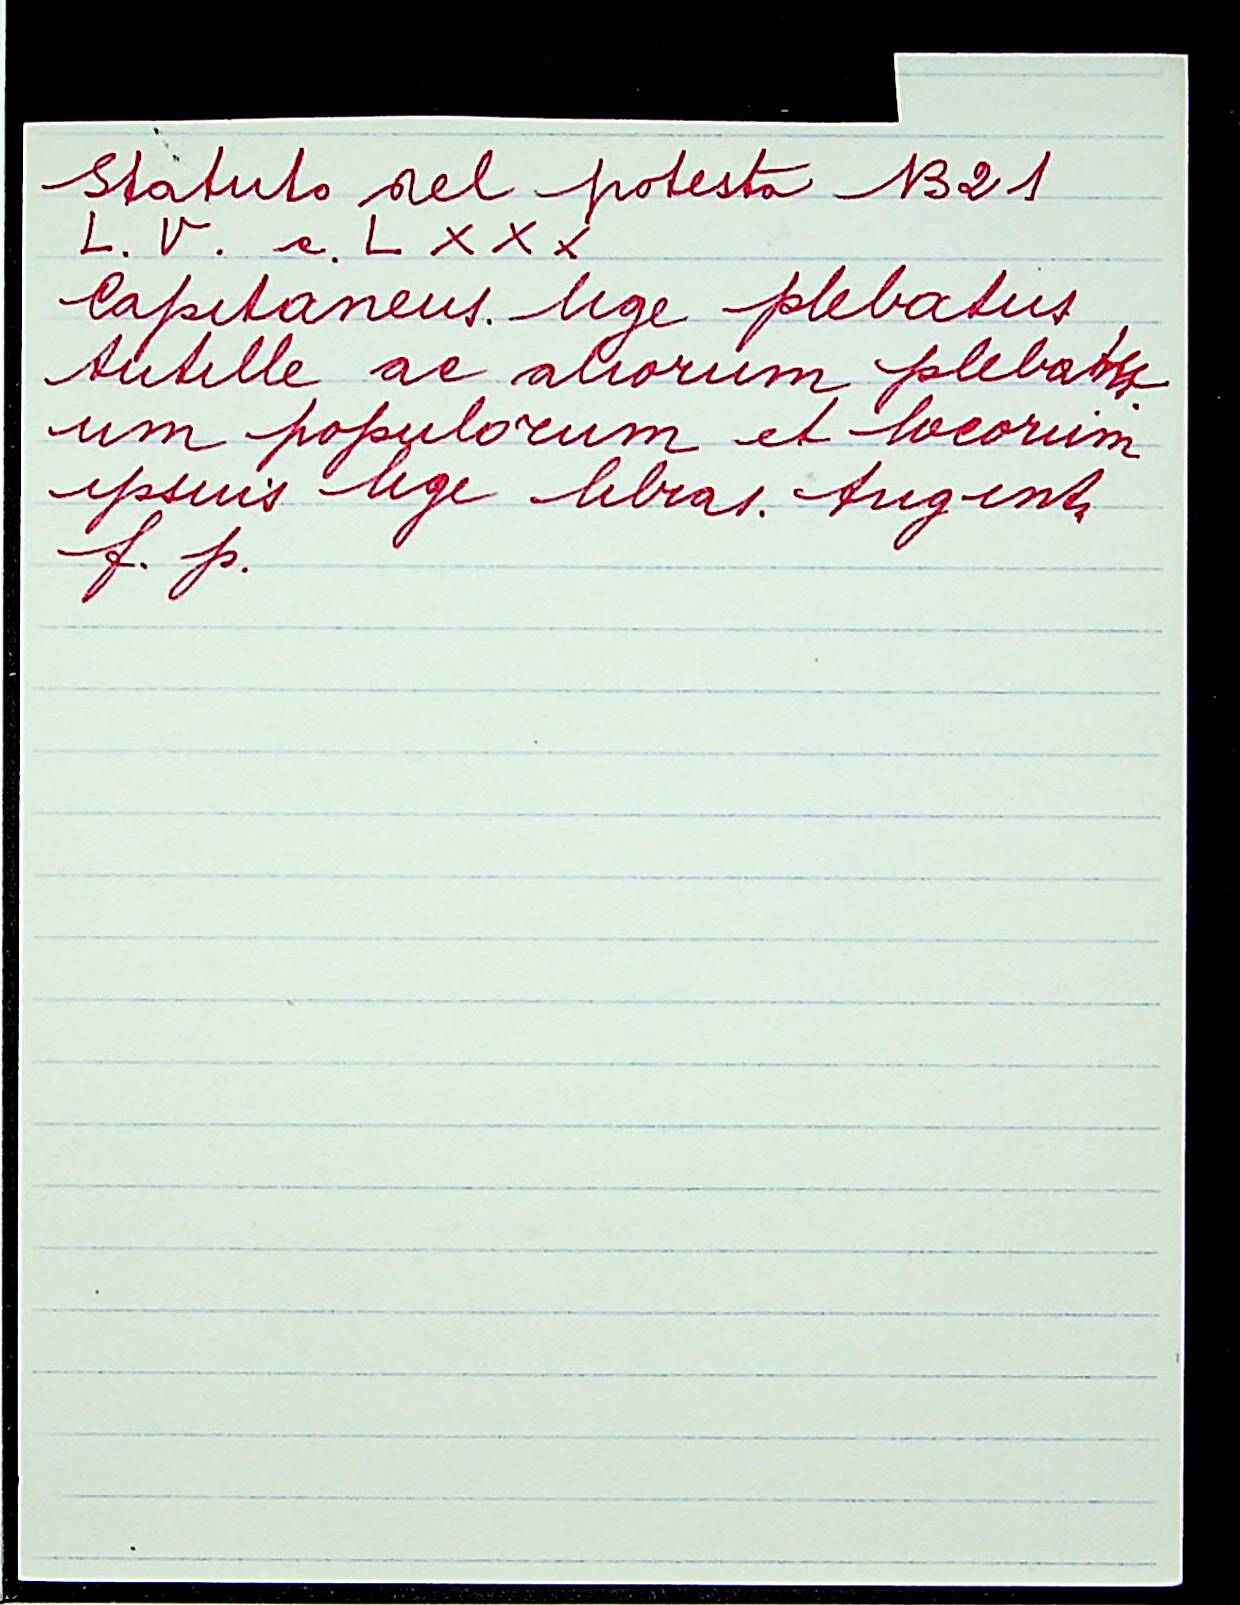 Statuto del potesta NB21
L. V. c. LXXX
Capitaneus. lige plebatus
Antille ac aliorum plebat
um populorum et locorum
ipsius lige libras. trigint
f. p.